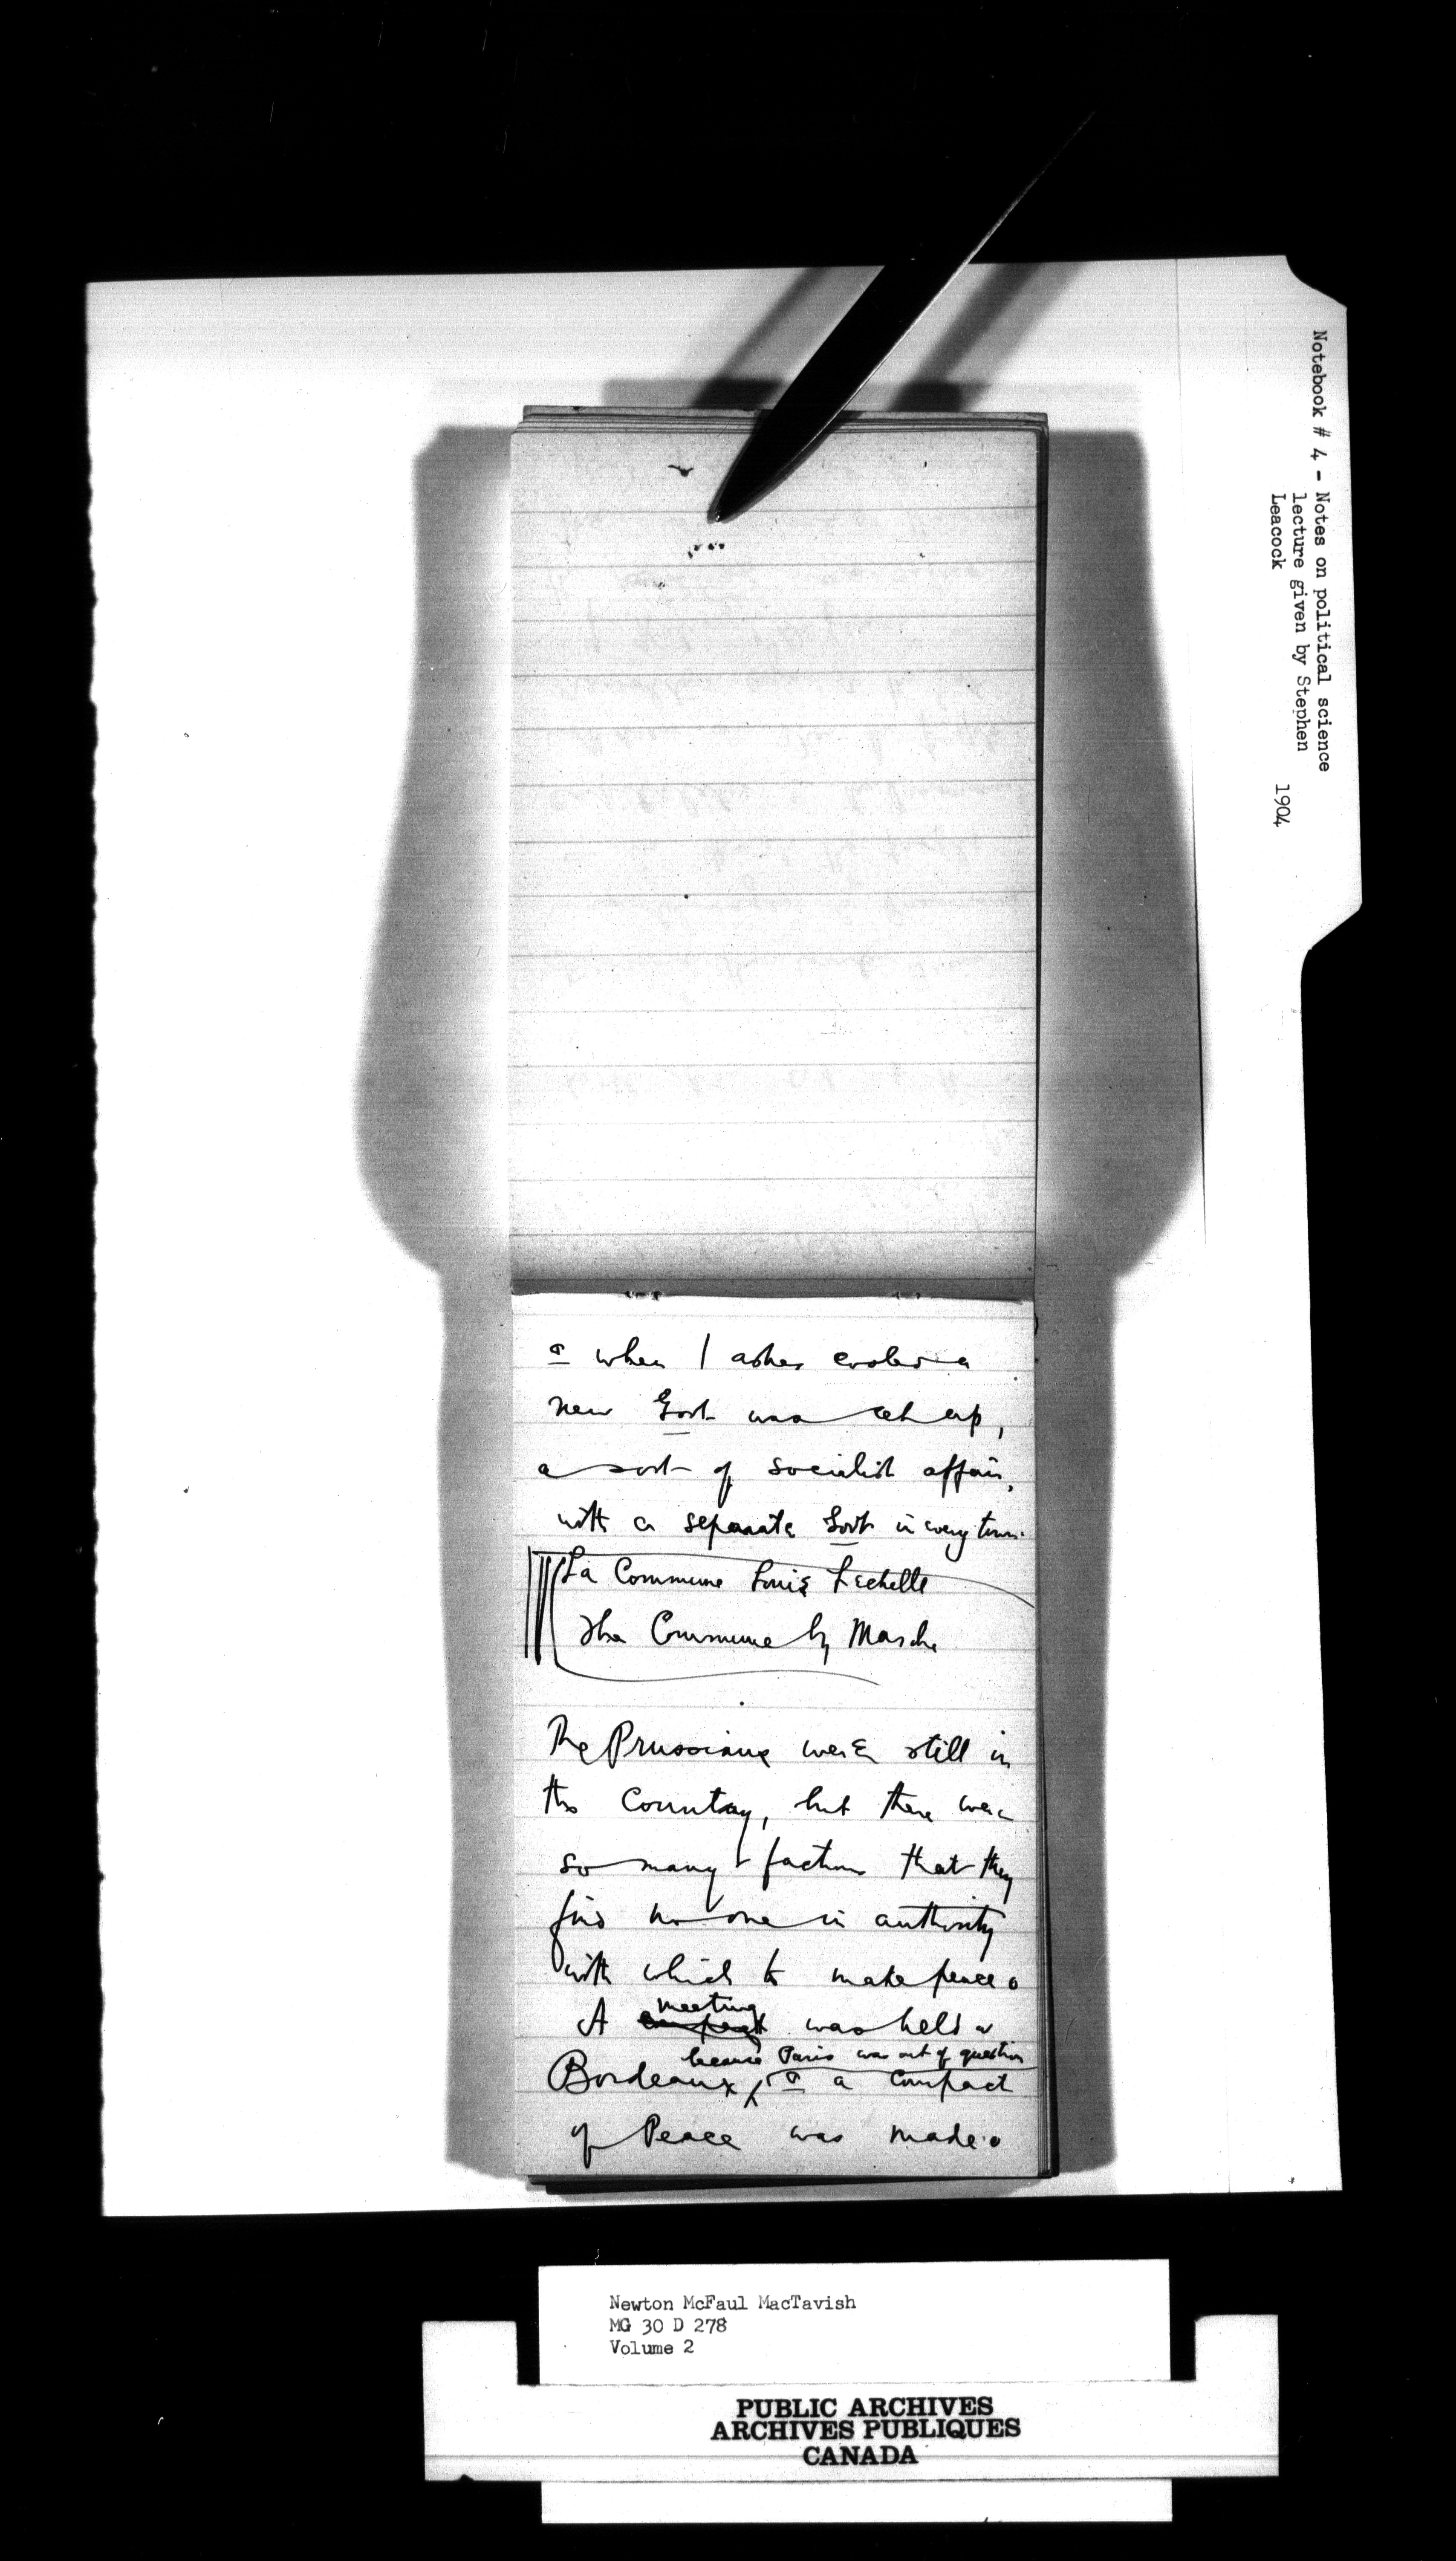 Notebook # 4 - Notes on political science
lecture given by Stephen
Leacock 1904
& when / ashes cooled a
new Govt was set up,
a sort of socialist affair,
with a separate Govt in every town.
La Commune Louis
The Commune by
The Prussians were still in
the Country, but there were
so many factions that they
find no one in authority
with which to make peace.
A meeting was held a
because Paris was out of question
Bordeaux, & a compact
of Peace was made.
Newton McFaul MacTavish
MG 30 D 278
Volume 2
PUBLIC ARCHIVES
ARCHIVES PUBLIQUES
CANADA